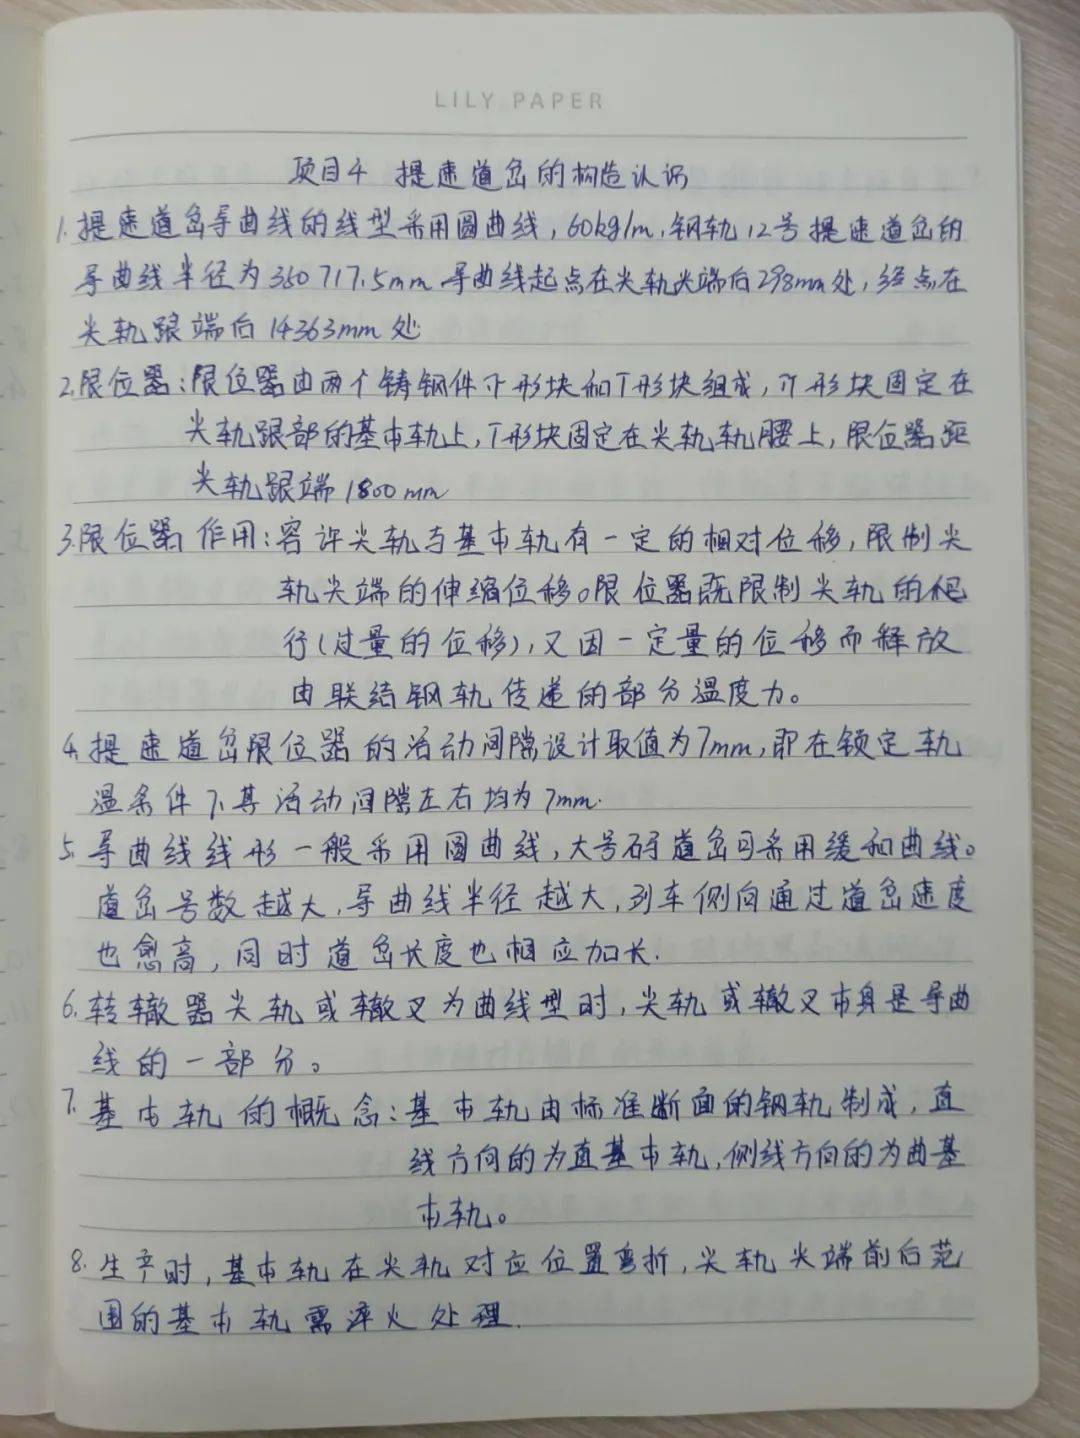 LILY PAPER
项目4 提速道岔的构造认识
1. 提速道岔导曲线的线型采用圆曲线，60kg/m，钢轨12号提速道岔的
导曲线半径为350717.5mm 导曲线起点在尖轨尖端后298mm处，终点在
尖轨跟端后14363mm处
2. 限位器：限位器由两个铸钢件 形块和T形块组成， 形块固定在
尖轨跟部的基本轨上，T形块固定在尖轨轨腰上，限位器距
尖轨跟端1800mm
3. 限位器作用：容许尖轨与基本轨有一定的相对位移，限制尖
轨尖端的伸缩位移。限位器既限制尖轨的爬
行(过量的位移)，又因一定量的位移而释放
由联结钢轨传递的部分温度力。
4. 提速道岔限位器的活动间隙设计取值为7mm，即在锁定轨
温条件下，其活动间隙左右均为7mm.
5. 导曲线线形一般采用圆曲线，大号码道岔可采用缓和曲线。
道岔号数越大，导曲线半径越大，列车侧向通过道岔速度
也愈高，同时道岔长度也相应加长.
6. 转辙器尖轨或辙叉为曲线型时，尖轨或辙叉本身是导曲
线的一部分。
7. 基本轨的概念：基本轨由标准断面的钢轨制成，直
线方向的为直基本轨，侧线方向的为曲基
本轨。
8. 生产时，基本轨在尖轨对应位置弯折，尖轨尖端前后范
围的基本轨需淬火处理.